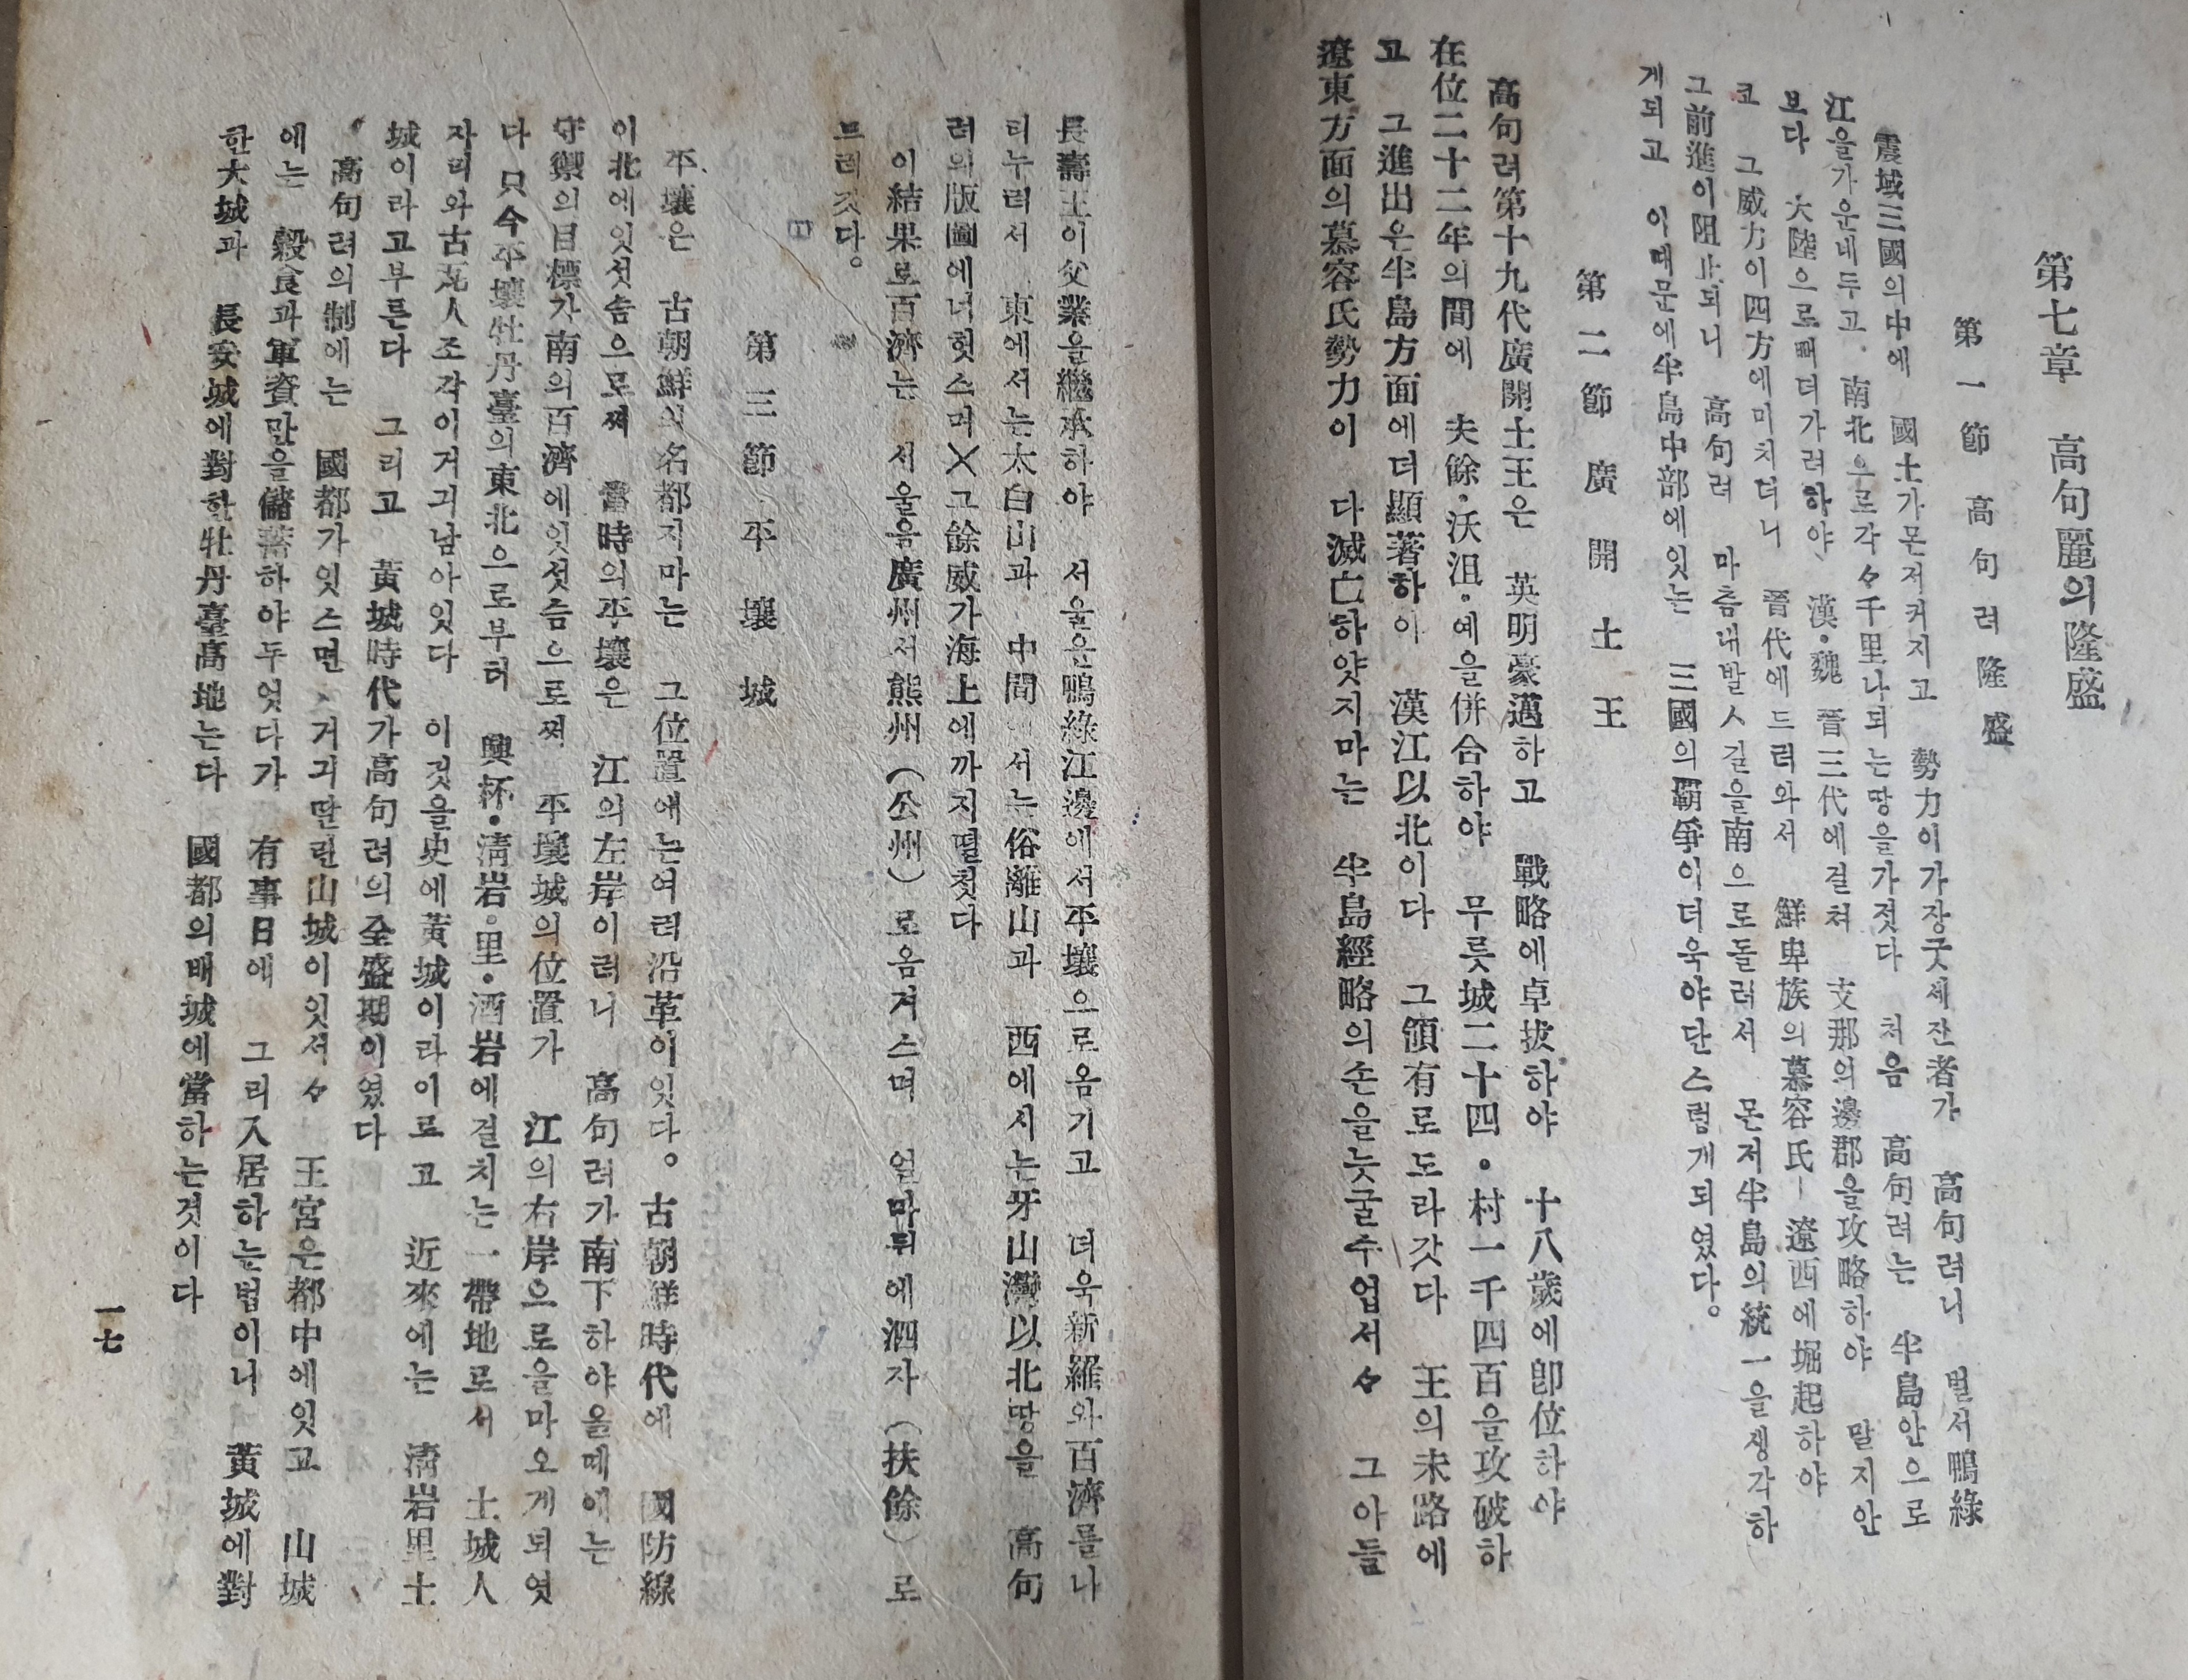 第七章 高句麗의隆盛
第一節 高句려隆盛
震域三國의中에 國土가몬저커지고 勢力이가장굿세잔者가 高句려니 벌서鴨綠
江을가운네두고 南北으로각々千里나되는땅을가젓다 처음 高句려는 半島안으로
보다 大陸으로뻐더가려하야 漢·魏 晉三代에걸처 支那의邊郡을攻略하야 말지안
코 그威力이四方에미치더니 晉代에드러와서 鮮卑族의慕容氏ㅣ遼西에堀起하야
그前進이阻止되니 高句려 마츰내발ㅅ길을南으로돌려서 몬저半島의統一을생각하
게되고 이때문에半島中部에잇는 三國의覇爭이더욱야단스렁게되였다。
第二節 廣開土王
高句려第十九代廣開土王은 英明豪邁하고 戰略에卓拔하야 十八歲에卽位하야
在位二十二年의間에 夫餘·沃沮·예을併合하야 무릇城二十四·村一千四百을攻破하
고 그進出은半島方面에더顯著하이 漢江以北이다 그領有로도라갓다 王의末路에
遼東方面의慕容氏勢力이 다滅亡하얏지마는 半島經略의손을늣굴수업서々 그아들
長壽王이父業을繼承하야 서울은鴨綠江邊에서平壤으로옴기고 더욱新羅와百濟를나
티누려서 東에서는太白山과 中間 서는俗離山과 西에서는牙山灣以北땅을 高句
려의版圖에너헛스며╳그餘威가海上에까지떨첫다
이結果로百濟는 서울을廣州서熊州(公州)로옴겨스며 얼마뒤에泗자(扶餘)로
므려갓다。
第三節 平壤城
平壤은 古朝鮮의名都지마는 그位置에는여려沿革이잇다。古朝鮮時代에 國防線
이北에잇섯슴으로쩌 當時의平壤은 江의左岸이려니 高句려가南下하야올때에는
守禦의目標가南의百濟에잇섯슴으로쩌 平壤城의位置가 江의右岸으로을마오게되엿
다 只今平壤牡丹臺의東北으로부터 興杯·淸岩。里·酒岩에걸치는一帶地로서 土城人
자리와古瓦人조각이거긔남아잇다 이것을史에黃城이라이로고 近來에는 淸岩里土
城이라고부른다 그리고 黃城時代가高句려의全盛期이였다
高句려의制에는 國都가잇스면 거긔딴린山城이잇서々 王宮은都中에잇고 山城
에는 穀食과軍資만을儲蓄하야두엇다가 有事日에 그리入居하는법이니 黃城에對
한大城과 長安城에對한牡丹臺高地는다 國都의배城에當하는것이다
一七